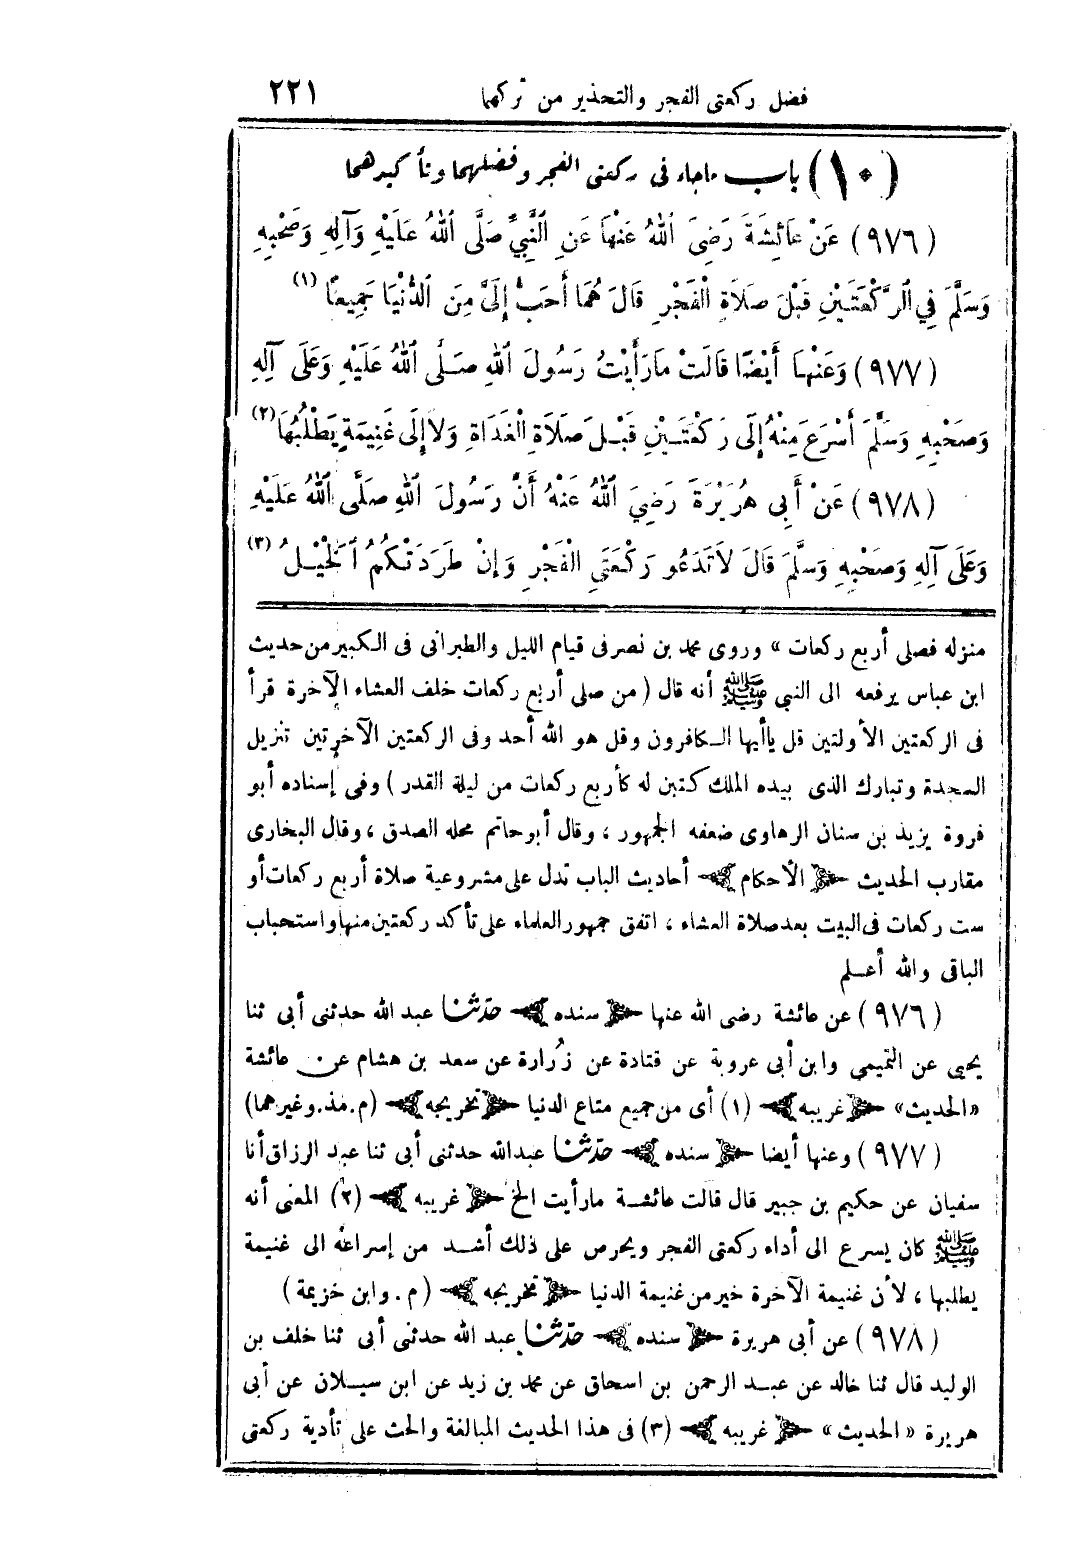 فضل ركعتى الفجر والتحذير من تركهما ٢٢١
(١٠) باب ماجاء فى ركعتى الفجر وفضلهما وتأكيدهما
(٩٧٦) عَنْ عَائِشَةَ رَضِىَ اللهُ عَنْهَا عَنِ النَّبِيِّ صَلَّى اللهُ عَلَيْهِ وَآلِهِ وَصَحْبِهِ
وَسَلَّمَ فِي الرَّكْعَتَيْنِ قَبْلَ صَلَاةِ الْفَجْرِ قَالَ هُمَا أَحَبُّ إِلَىَّ مِنَ الدُّنْيَا جَمِيعًا (١)
(٩٧٧) وَعَنْهَا أَيْضًا قَالَتْ مَارَأَيْتُ رَسُولَ اللهِ صَلَّى اللهُ عَلَيْهِ وَعَلَى آلِهِ
وَصَحْبِهِ وَسَلَّمَ أَسْرَعَ مِنْهُ إِلَى رَكْعَتَيْنِ قَبْلَ صَلَاةِ الْغَدَاةِ وَلَا إِلَى غَنِيمَةٍ يَطْلُبُهَا (٢)
(٩٧٨) عَنْ أَبِي هُرَيْرَةَ رَضِيَ اللهُ عَنْهُ أَنَّ رَسُولَ اللهِ صَلَّى اللهُ عَلَيْهِ
وَعَلَى آلِهِ وَصَحْبِهِ وَسَلَّمَ قَالَ لَاتَدَعُو رَكْعَتَيِ الْفَجْرِ وَإِنْ طَرَدَتْكُمُ الْخَيْلُ (٣)
منزله فصلى أربع ركعات» وروى محمد بن نصر فى قيام الليل والطبرانى فى الكبير من حديث
ابن عباس يرفعه الى النبي ﷺ أنه قال (من صلى أربع ركعات خلف العشاء الآخرة قرأ
فى الركعتين الأولتين قل ياأيها الكافرون وقل هو الله أحد وفى الركعتين الآخرتين تنزيل
السجدة وتبارك الذى بيده الملك كتبن له كأربع ركعات من ليلة القدر) وفى إسناده أبو
فروة يزيد بن سنان الرهاوى ضعفه الجمهور، وقال أبو حاتم محله الصدق، وقال البخارى
مقارب الحديث ﴿الأحكام﴾ أحاديث الباب تدل على مشروعية صلاة أربع ركعات أو
ست ركعات فى البيت بعد صلاة العشاء، اتفق جمهور العلماء على تأكد ركعتين منها واستحباب
الباقى والله أعلم
(٩٧٦) عن عائشة رضى الله عنها ﴿سنده﴾ حدّثنا عبد الله حدثنى أبى ثنا
يحيى عن التميمي وابن أبى عروبة عن قتادة عن زُرارة عن سعد بن هشام عن عائشة
«الحديث» ﴿غريبه﴾ (١) أى من جميع متاع الدنيا ﴿تخريجه﴾ (م.مذ.وغيرهما)
(٩٧٧) وعنها أيضا ﴿سنده﴾ حدّثنا عبدالله حدثنى أبى ثنا عبد الرزاق أنا
سفيان عن حكيم بن جبير قال قالت عائشة مارأيت الخ ﴿غريبه﴾ (٢) المعنى أنه
ﷺ كان يسرع الى أداء ركعتى الفجر ويحرص على ذلك أشد من إسراعه الى غنيمة
يطلبها، لأن غنيمة الآخرة خير من غنيمة الدنيا ﴿تخريجه﴾ (م.وابن خزيمة)
(٩٧٨) عن أبى هريرة ﴿سنده﴾ حدّثنا عبد الله حدثنى أبى ثنا خلف بن
الوليد قال ثنا خالد عن عبد الرحمن بن اسحاق عن محمد بن زيد عن ابن سيلان عن أبى
هريرة «الحديث» ﴿غريبه﴾ (٣) فى هذا الحديث المبالغة والحث على تأدية ركعتى